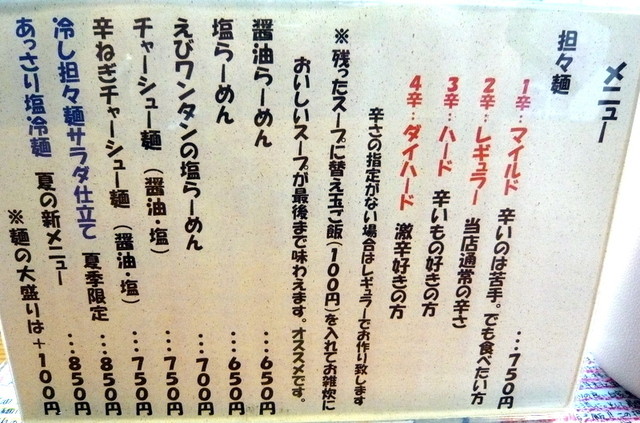 メニュー
担々麺
1辛…マイルド 辛いのは苦手。でも食べたい方 …750円
2辛…レギュラー 当店通常の辛さ
3辛…ハード 辛いもの好きの方
4辛…ダイハード 激辛好きの方
辛さの指定がない場合はレギュラーでお作り致します
※残ったスープに替え玉ご飯(100円)を入れてお雑炊に
おいしいスープが最後まで味わえます。オススメです。
醤油らーめん …650円
塩らーめん …650円
えびワンタンの塩らーめん …700円
チャーシュー麺(醤油・塩) …750円
辛ねぎチャーシュー麺(醤油・塩) …750円
冷し担々麺サラダ仕立て 夏季限定 …850円
あっさり塩冷麺 夏の新メニュー …850円
※麺の大盛りは+100円